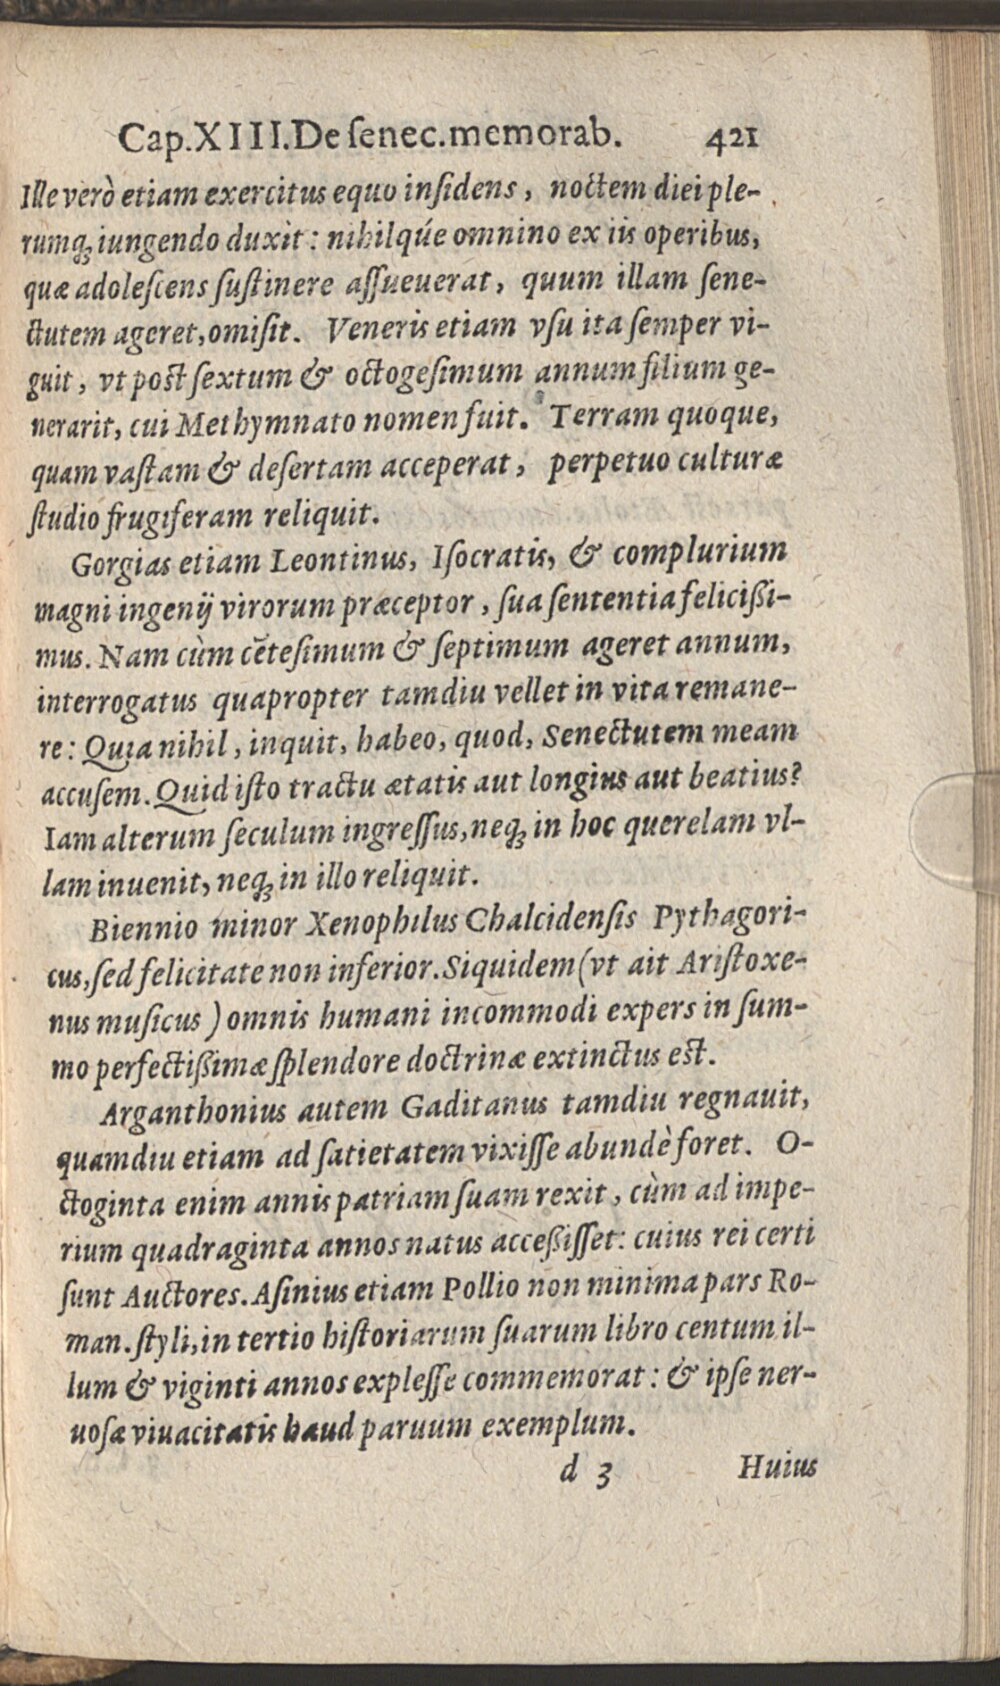 Cap. XIIII. De ſenec. memorab. 421
Ille verò etiam exercitus equo inſidens, noctem diei ple-
rumq́; iungendo duxit: nihilqúe omnino ex iis operibus,
quæ adoleſcens ſuſtinere aſſueuerat, quum illam ſene-
ctutem ageret, omiſit. Veneris etiam vſu ita ſemper vi-
guit, vt poſt ſextum & octogeſimum annum filium ge-
nerarit, cui Methymnato nomen fuit. Terram quoque,
quam vaſtam & deſertam acceperat, perpetuo culturæ
ſtudio frugiferam reliquit.
Gorgias etiam Leontinus, Iſocratis, & complurium
magni ingenij virorum præceptor, ſua ſententia felicißi-
mus. Nam cùm cẽteſimum & ſeptimum ageret annum,
interrogatus quapropter tamdiu vellet in vita remane-
re: Quia nihil, inquit, habeo, quod, Senectutem meam
accuſem. Quid iſto tractu ætatis aut longius aut beatius?
Iam alterum ſeculum ingreſſus, neq; in hoc querelam vl-
lam inuenit, neq; in illo reliquit.
Biennio minor Xenophilus Chalcidenſis Pythagori-
cus, ſed felicitate non inferior. Siquidem (vt ait Ariſtoxe-
nus muſicus) omnis humani incommodi expers in ſum-
mo perfectißimæ ſplendore doctrinæ extinctus eſt.
Arganthonius autem Gaditanus tamdiu regnauit,
quamdiu etiam ad ſatietatem vixiſſe abundè foret. O-
ctoginta enim annis patriam ſuam rexit, cùm ad impe-
rium quadraginta annos natus acceßiſſet: cuius rei certi
ſunt Auctores. Aſinius etiam Pollio non minima pars Ro-
man. ſtyli, in tertio hiſtoriarum ſuarum libro centum il-
lum & viginti annos expleſſe commemorat: & ipſe ner-
uoſæ viuacitatis haud paruum exemplum.
d 3 Huius